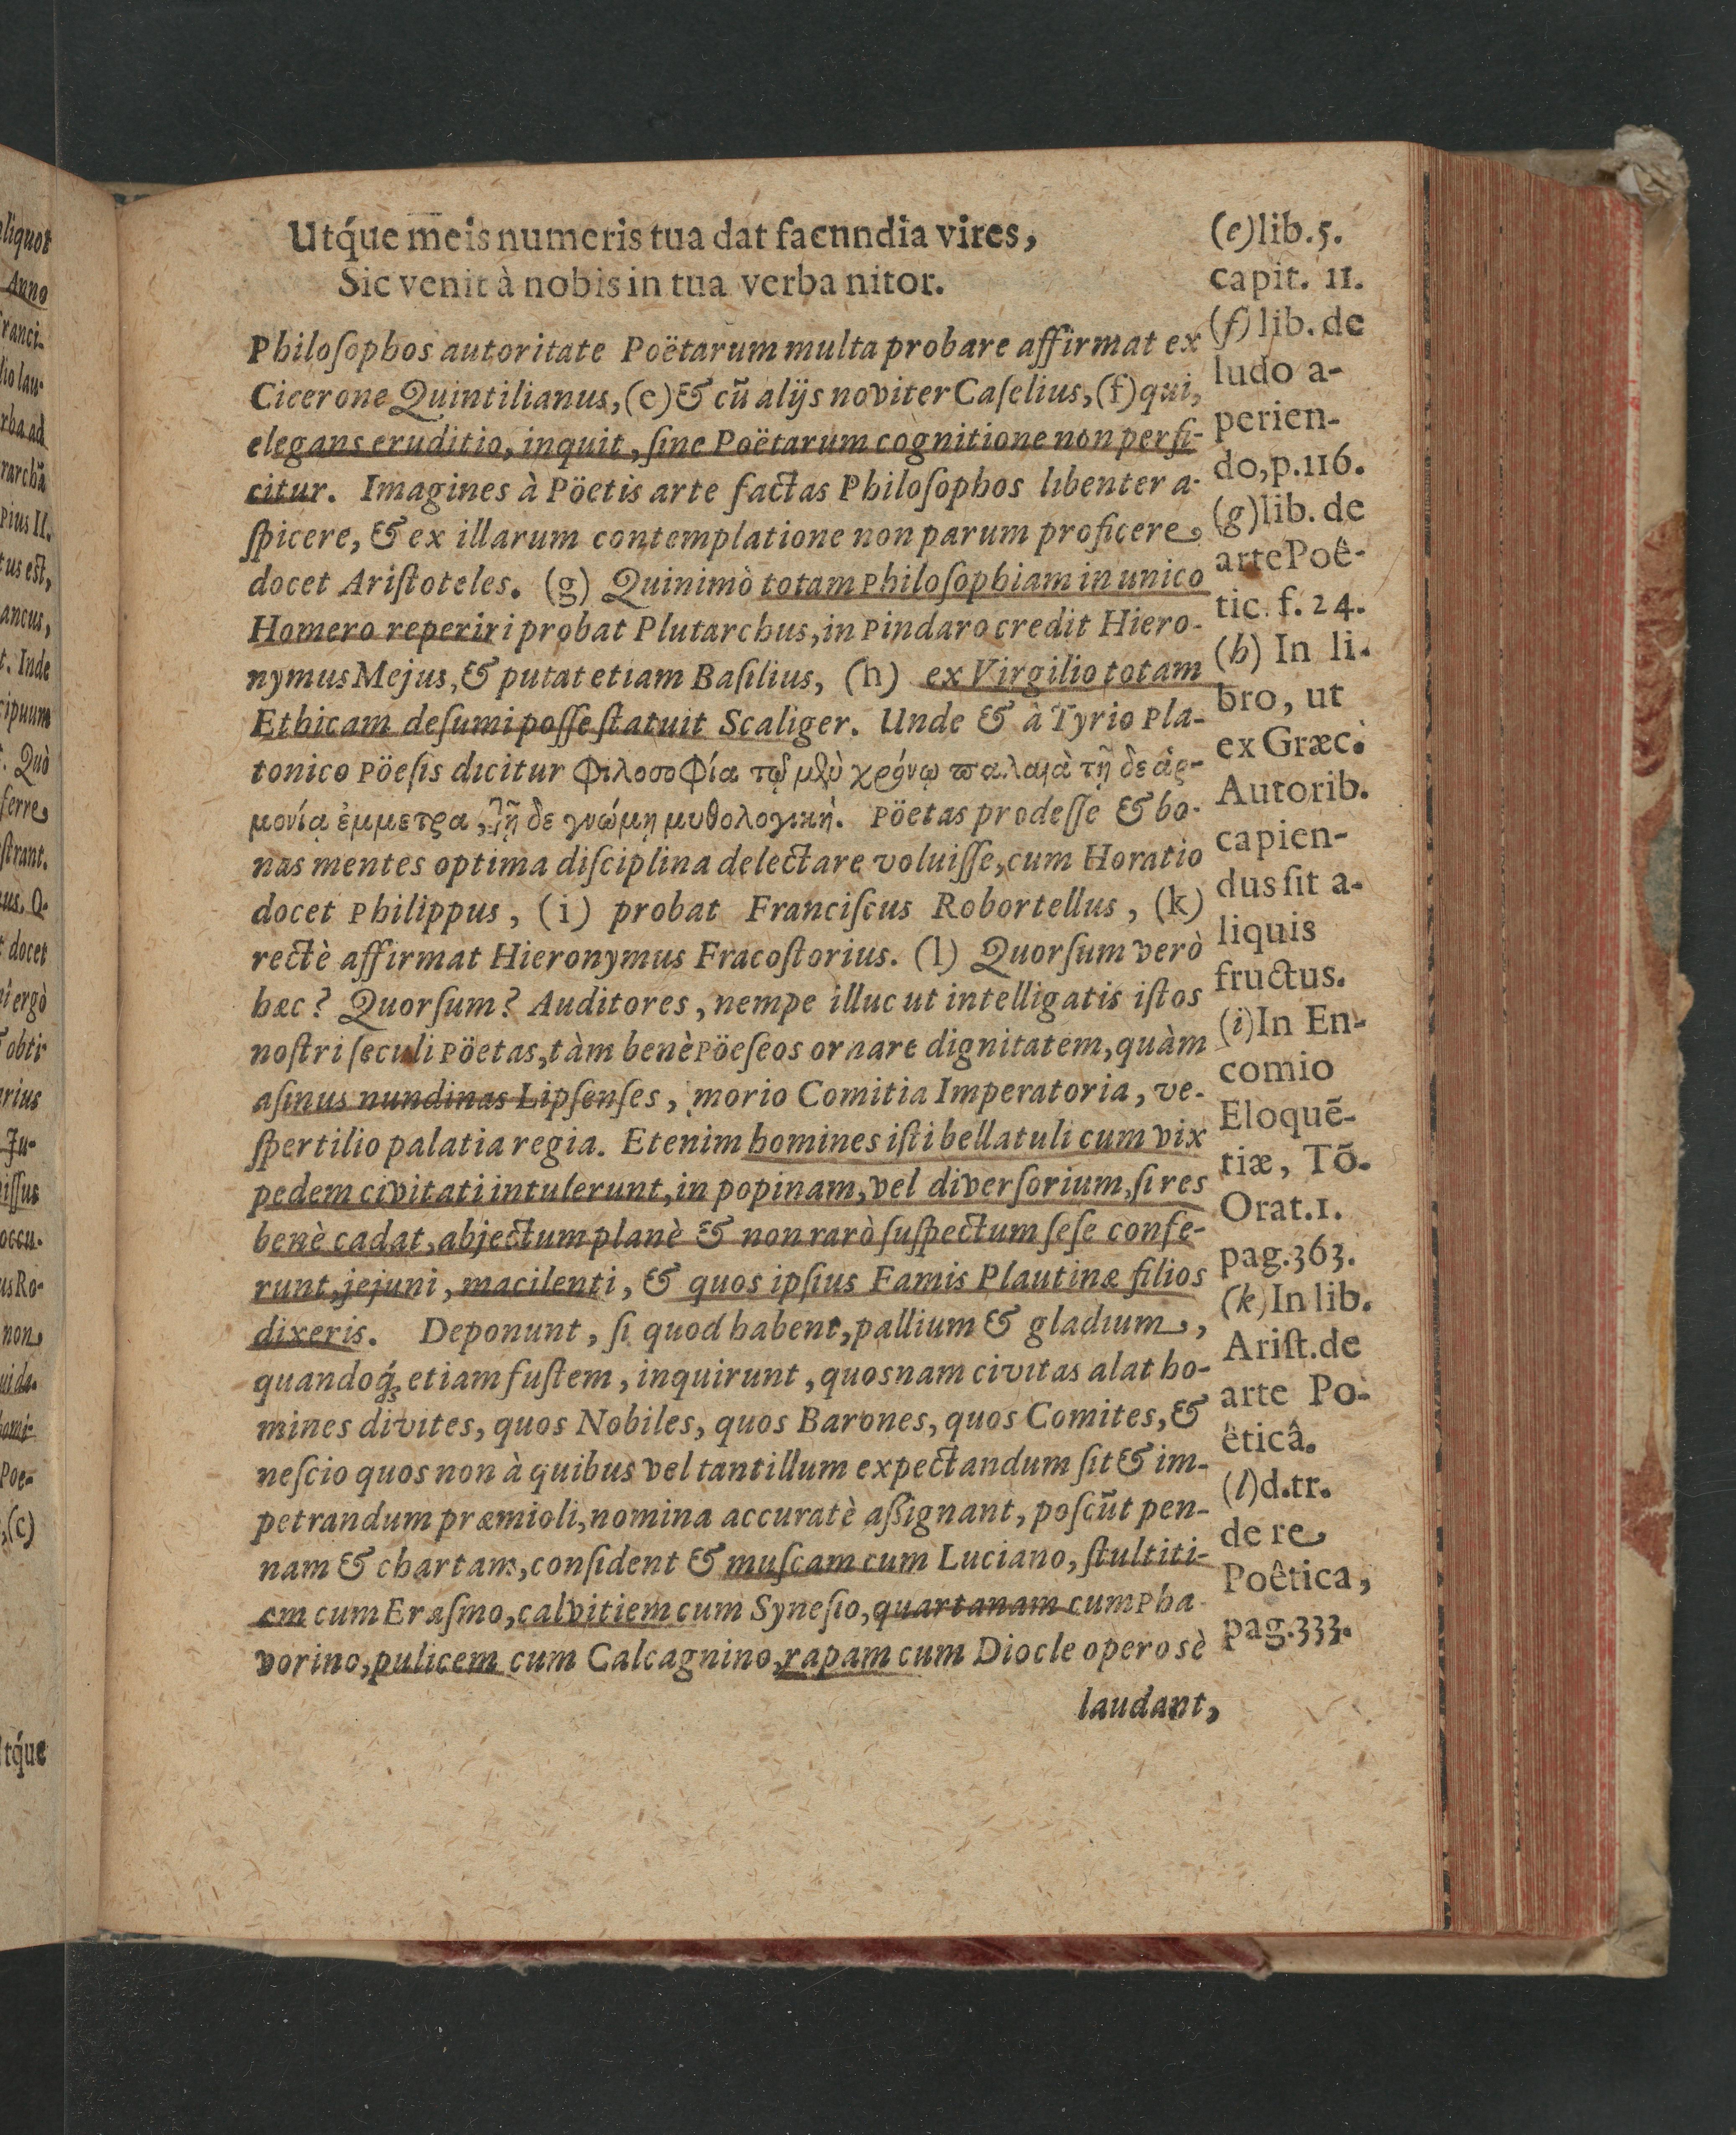 Utq́ue meis numeris tua dat facnndia vires,
Sic venit à nobis in tua verba nitor.
Philoſophos autoritate Poëtarum multa probare affirmat ex
Cicerone Quintilianus, (e) & cū alijs noviter Caſelius, (f) qui,
elegans eruditio, inquit, ſine Poëtarum cognitione non perfi-
citur. Imagines à Pöetis arte factas Philoſophos libenter a-
ſpicere, & ex illarum contemplatione non parum proficere,
docet Ariſtoteles. (g) Quinimò totam Philoſophiam in unico
Homero reperiri probat Plutarchus, in Pindaro credit Hiero-
nymus Mejus, & putat etiam Baſilius, (h) ex Virgilio totam
Ethicam deſumi poſſe ſtatuit Scaliger. Unde & à Tyrio Pla-
tonico Pöeſis dicitur Φιλοσοφία τῷ μὲν χρόνῳ παλαιὰ τῇ δε ἁρ-
μονίᾳ ἐμμετρα, τῇ δε γνώμη μυθολογικὴ. Pöetas prodeſſe & bo-
nas mentes optima diſciplina delectare voluiſſe, cum Horatio
docet Philippus, (i) probat Franciſcus Robortellus, (k)
rectè affirmat Hieronymus Fracoſtorius. (l) Quorſum verò
hæc? Quorſum? Auditores, nempe illuc ut intelligatis iſtos
noſtri ſeculi Pöetas, tàm benè Pöeſeos ornare dignitatem, quàm
aſinus nundinas Lipſenſes, morio Comitia Imperatoria, ve-
ſpertilio palatia regia. Etenim homines iſti bellatuli cum vix
pedem civitati intulerunt, in popinam, vel diverſorium, ſi res
benè cadat, abjectum planè & non rarò ſuſpectum ſeſe confe-
runt, jejuni, macilenti, & quos ipſius Famis Plautinæ filios
dixeris. Deponunt, ſi quod habent, pallium & gladium,
quandoq́; etiam fuſtem, inquirunt, quosnam civitas alat ho-
mines divites, quos Nobiles, quos Barones, quos Comites, &
neſcio quos non à quibus vel tantillum expectandum ſit & im-
petrandum præmioli, nomina accuratè aßignant, poſcūt pen-
nam & chartam, conſident & muſcam cum Luciano, ſtultiti-
am cum Eraſmo, calvitiem cum Syneſio, quartanam cum Pha
vorino, pulicem cum Calcagnino, rapam cum Diocle operosè
laudant,
(e) lib. 5.
capit. 11.
(f) lib. de
ludo a-
perien-
do, p. 116.
(g) lib. de
arte Poê-
tic. f. 24.
(h) In li-
bro, ut
ex Græc.
Autorib.
capien-
dus ſit a-
liquis
fructus.
(i) In En-
comio
Eloquē-
tiæ, Tō.
Orat. 1.
pag. 363.
(k) In lib.
Ariſt. de
arte Po-
êticâ.
(l) d. tr.
de re
Poêtica,
pag. 333.